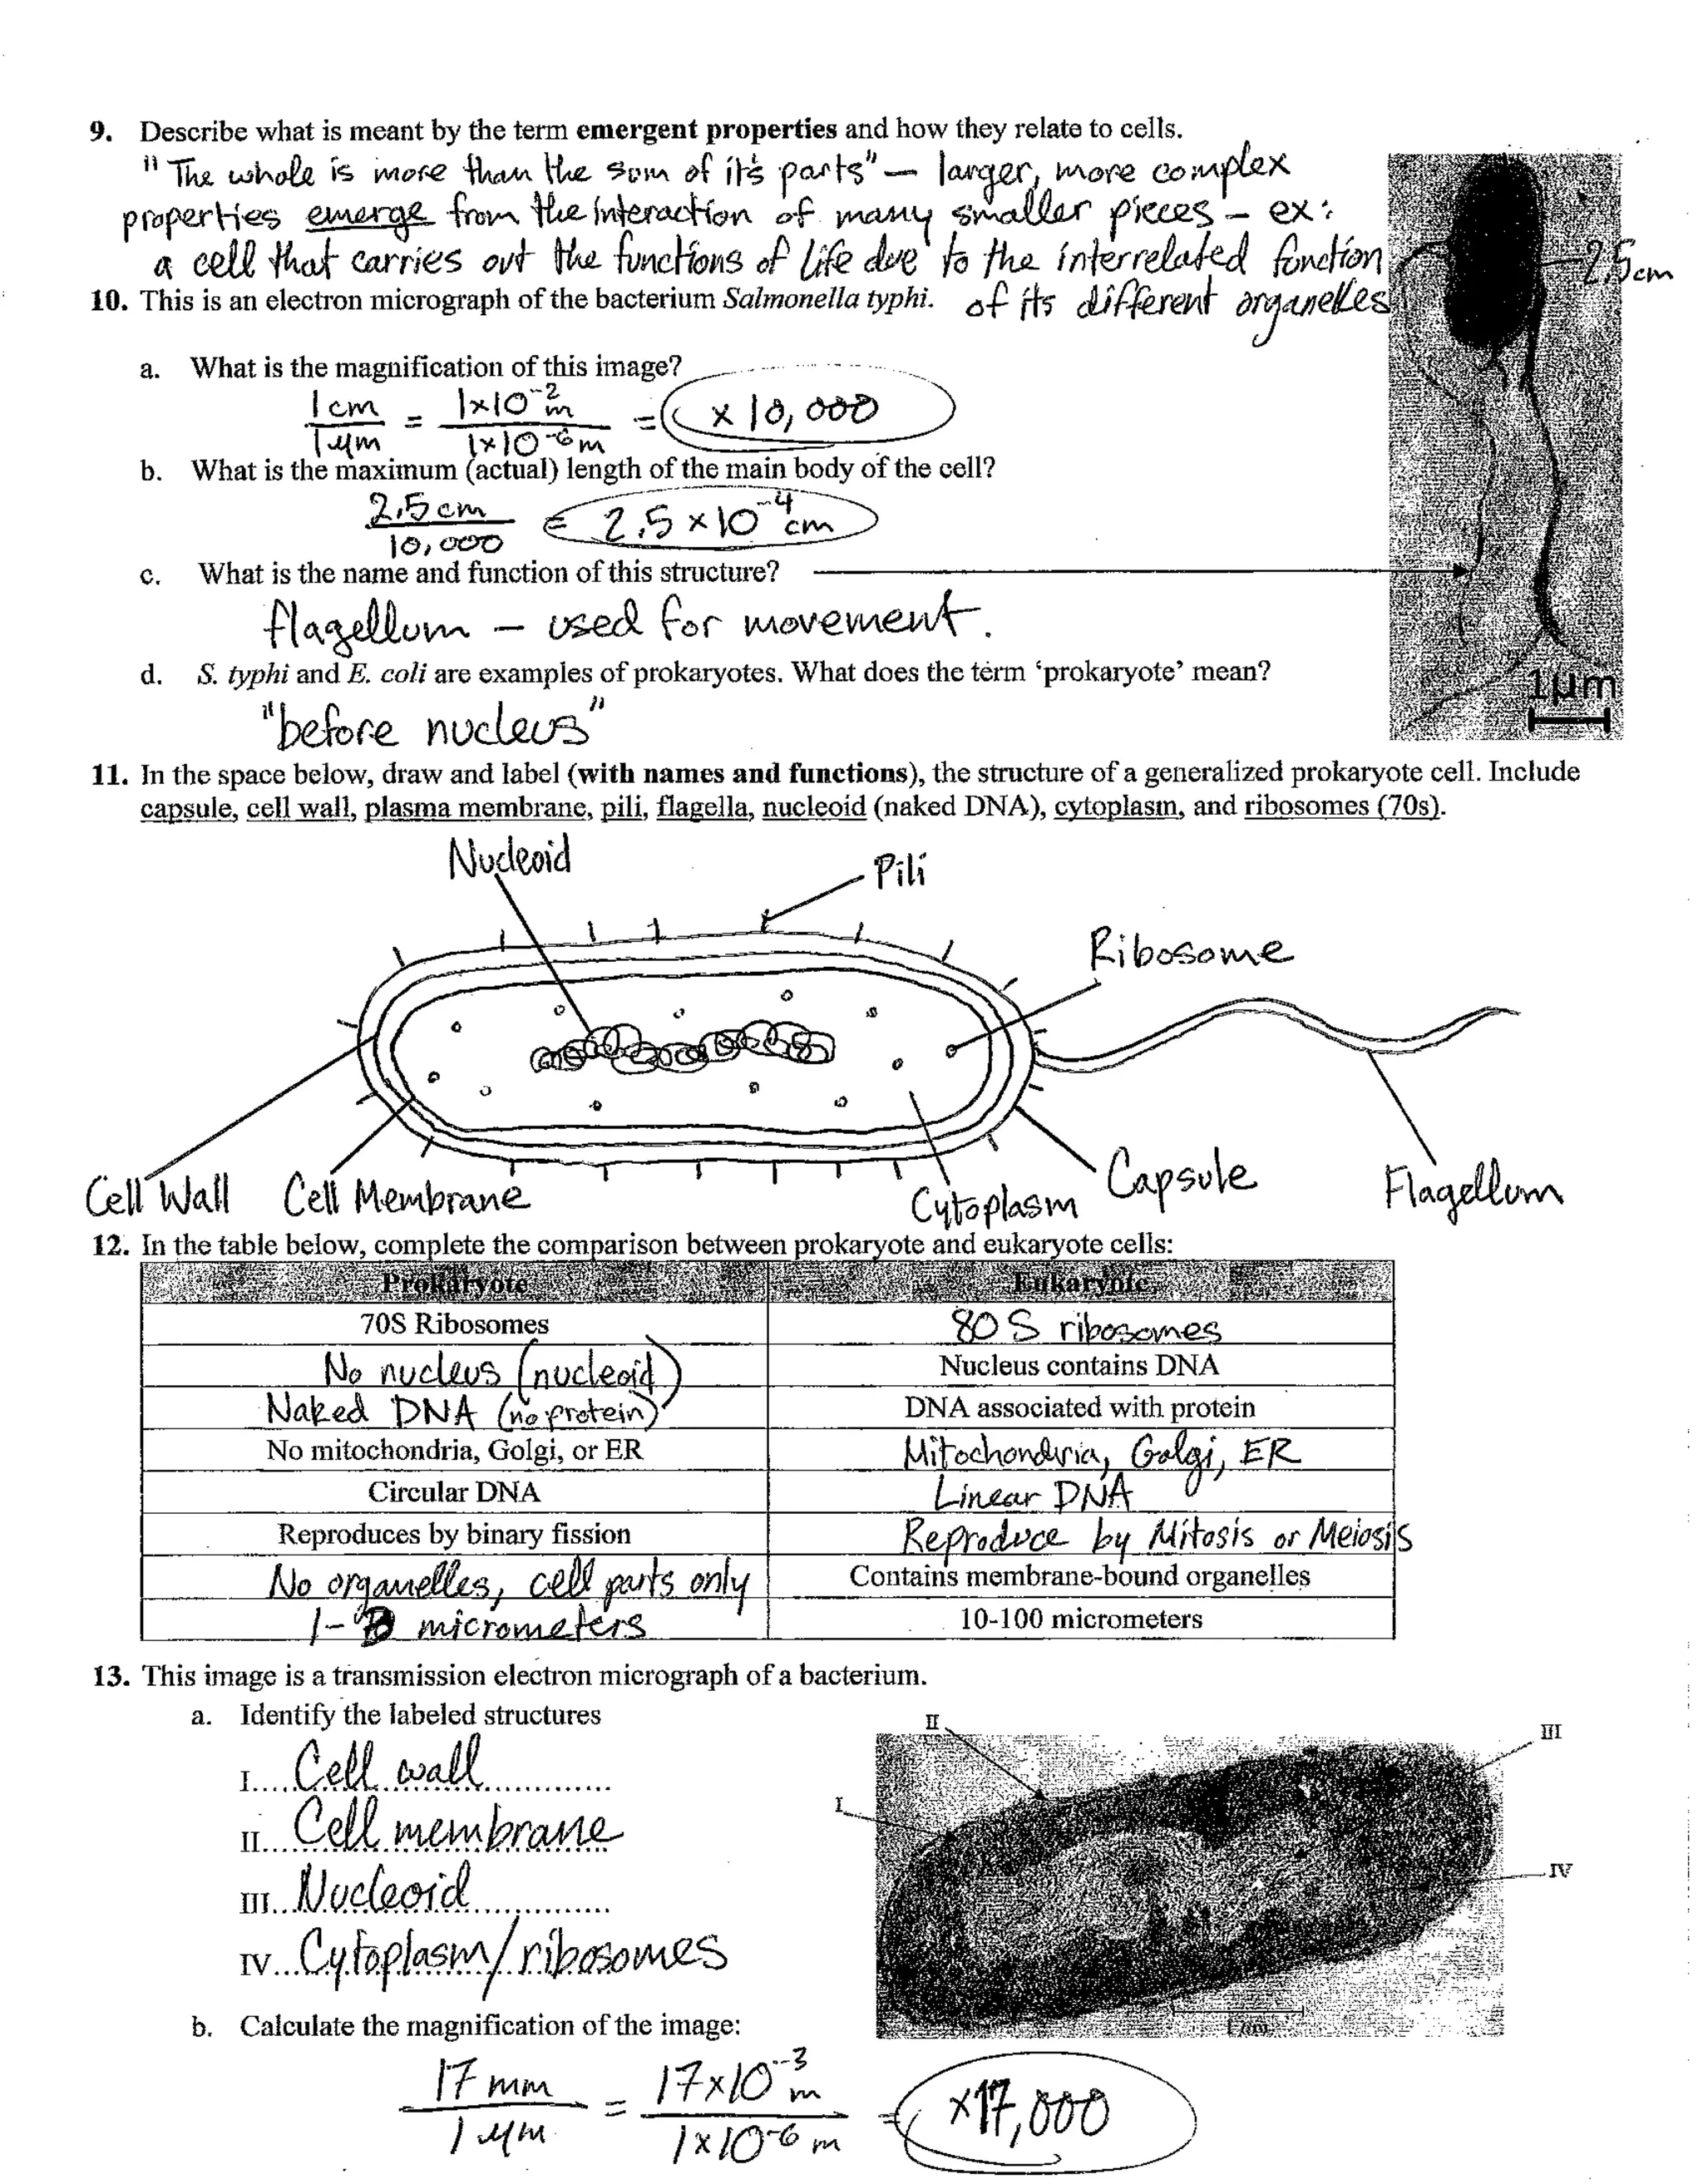 9. Describe what is meant by the term emergent properties and how they relate to cells.
"The whole is more than the sum of it's parts" — larger, more complex
properties emerge from the interaction of many smaller pieces - ex:
a cell that carries out the functions of life due to the interrelated function
2.5cm
10. This is an electron micrograph of the bacterium Salmonella typhi. of its different organelles
a. What is the magnification of this image?
1cm / 1μm = 1x10^-2 m / 1x10^-6 m = x 10,000
b. What is the maximum (actual) length of the main body of the cell?
2.5cm / 10,000 = 2.5 x 10^-4 cm
c. What is the name and function of this structure?
flagellum – used for movement.
d. S. typhi and E. coli are examples of prokaryotes. What does the term ‘prokaryote’ mean?
1μm
"before nucleus"
11. In the space below, draw and label (with names and functions), the structure of a generalized prokaryote cell. Include
capsule, cell wall, plasma membrane, pili, flagella, nucleoid (naked DNA), cytoplasm, and ribosomes (70s).
Nucleoid
Pili
Ribosome
Cell Wall Cell Membrane Cytoplasm Capsule Flagellum
12. In the table below, complete the comparison between prokaryote and eukaryote cells:
Prokaryote Eukaryote
70S Ribosomes 80S ribosomes
No nucleus (nucleoid) Nucleus contains DNA
Naked DNA (no protein) DNA associated with protein
No mitochondria, Golgi, or ER Mitochondria, Golgi, ER
Circular DNA Linear DNA
Reproduces by binary fission Reproduce by Mitosis or Meiosis
No organelles, cell parts only Contains membrane-bound organelles
micrometers 10-100 micrometers
13. This image is a transmission electron micrograph of a bacterium.
a. Identify the labeled structures
II
III
I..... Cell wall .............
I
II... Cell membrane
III.. Nucleoid .............
IV
IV... Cytoplasm/ribosomes
b. Calculate the magnification of the image:
17mm / 1μm = 17x10^-3 m / 1x10^-6 m = x17,000